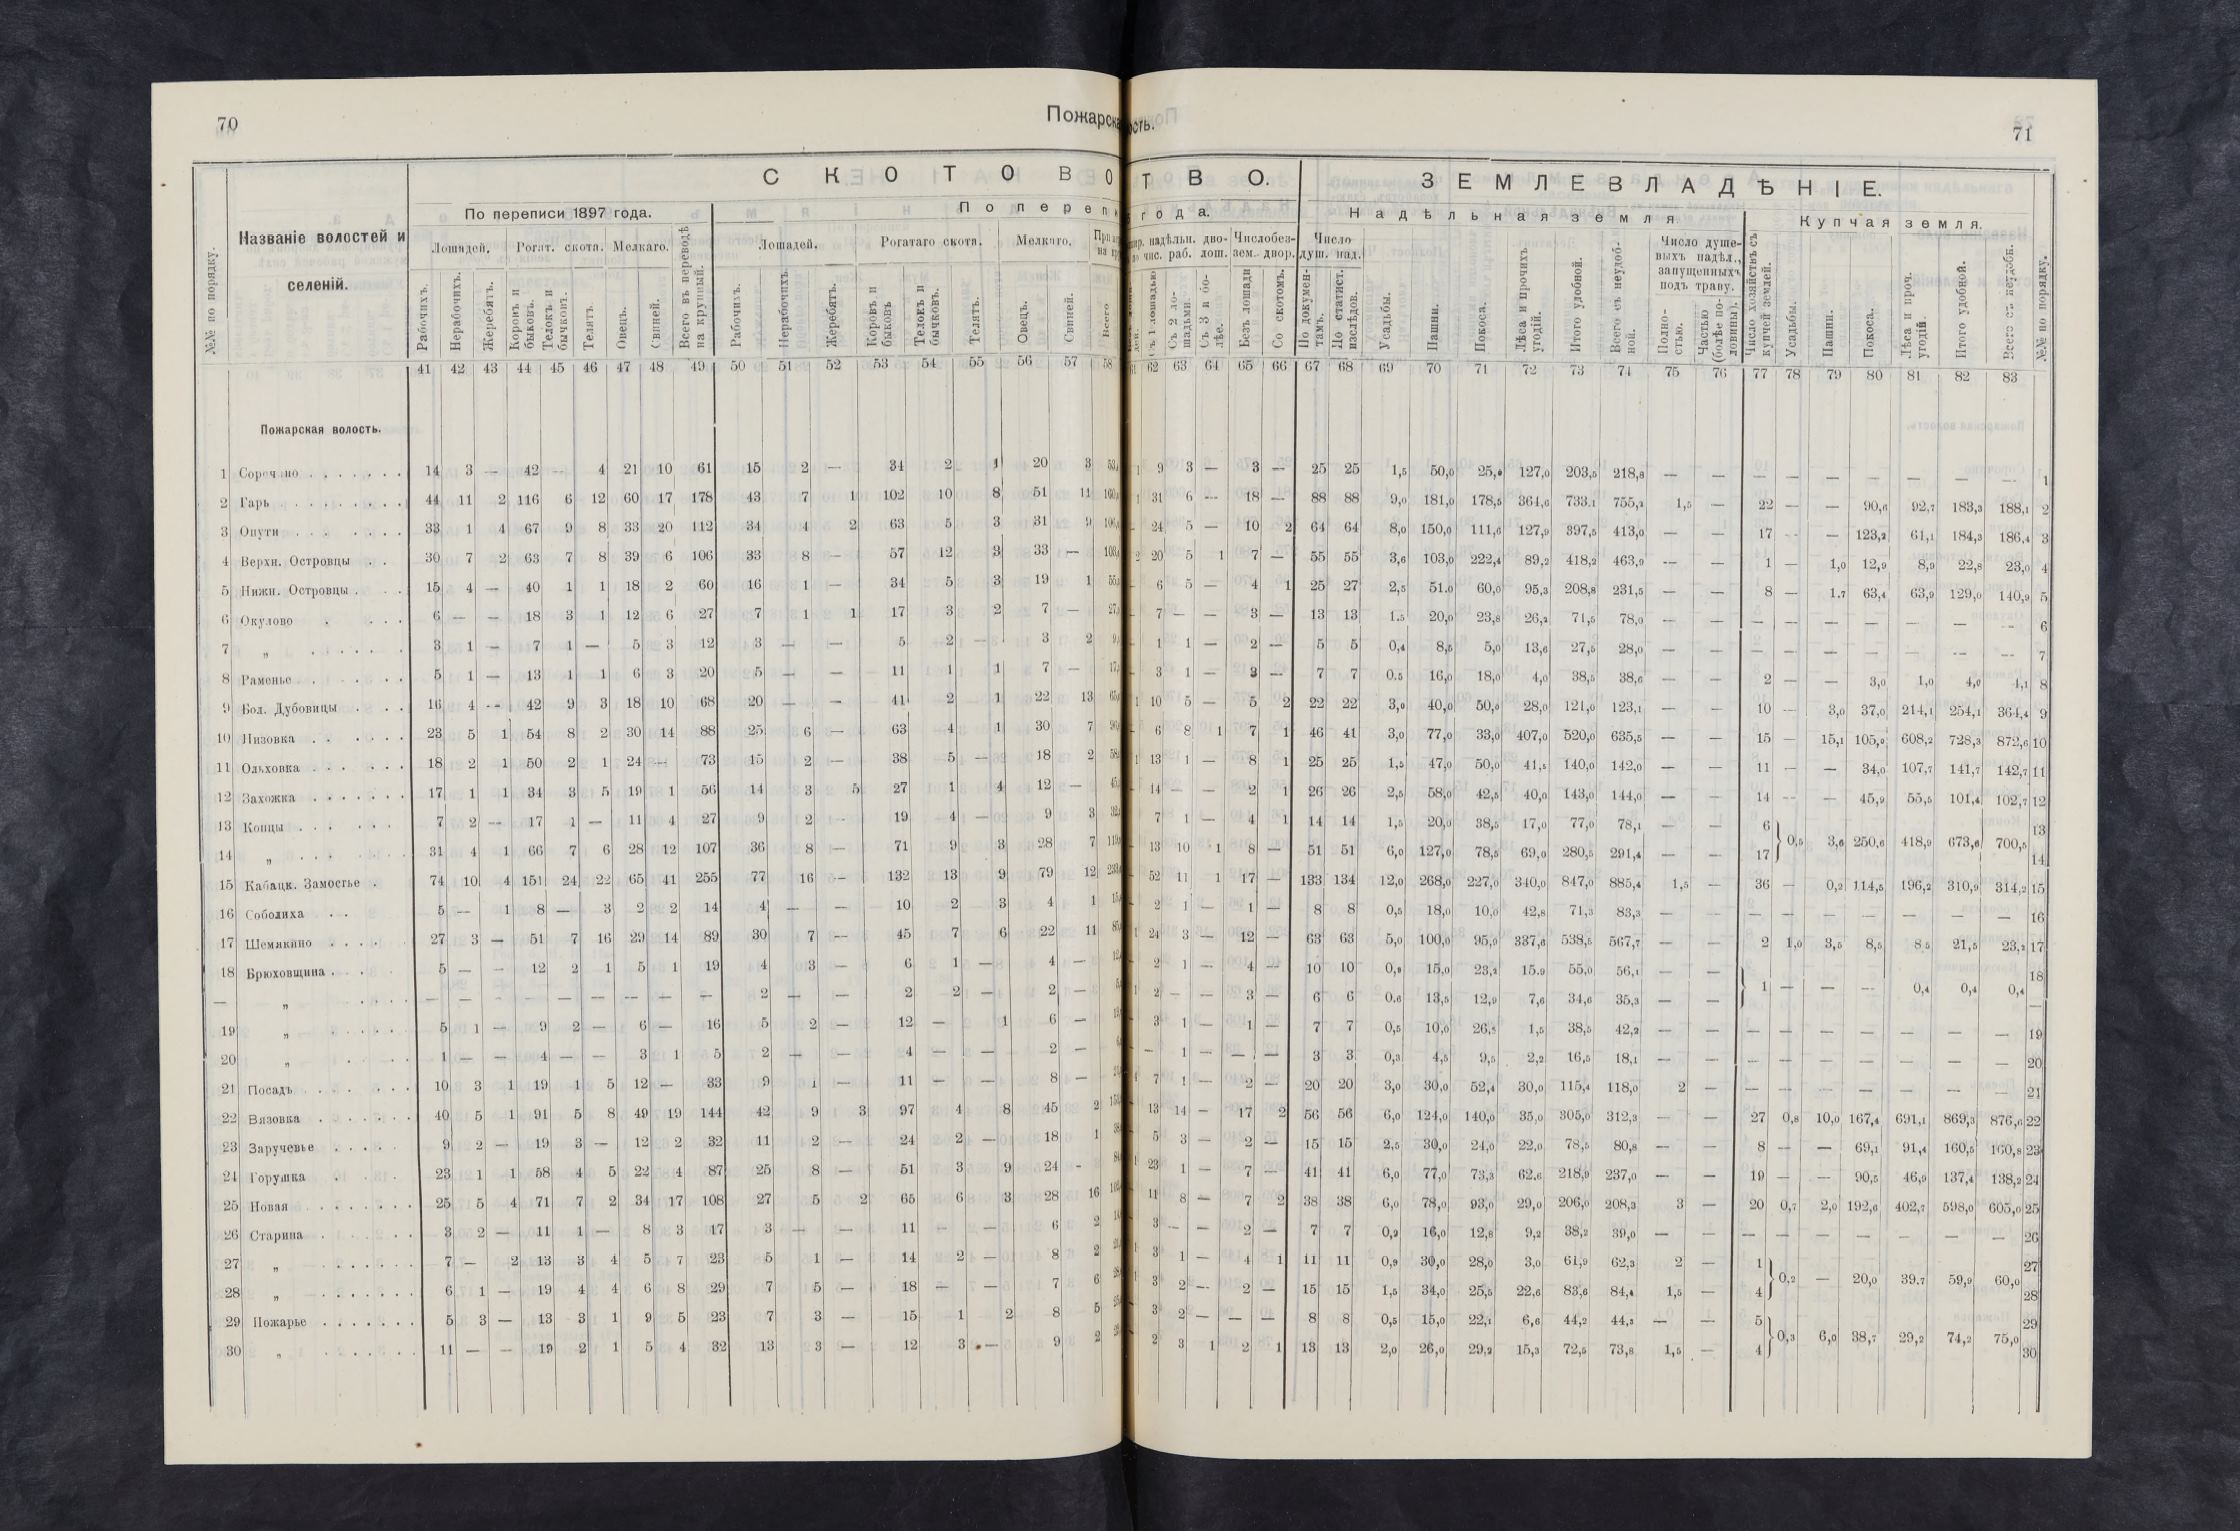 70
Пожарска
СКОТОВО
По переписи 1897 года.
По переп
№№ по порядку.
Названіе волостей и
селеній.
Лошадей.
Рогат. скота.
Мелкаго.
Всего въ переводѣ на крупный.
Лошадей.
Рогатаго скота.
Мелкаго.
Рабочихъ. Нерабочихъ. Жеребятъ. Коровъ и быковъ. Телокъ и бычковъ. Телятъ. Овецъ. Свиней.
Рабочихъ. Нерабочихъ. Жеребятъ. Коровъ и быковъ Телокъ и бычковъ. Телятъ. Овецъ. Свиней. Всего
41 42 43 44 45 46 47 48 49 50 51 52 53 54 55 56 57 58
Пожарская волость.
1 14 3 — 42 — 4 21 10 61 15 2 — 34 2 1 20 3
2 Гарь 44 11 2 116 6 12 60 17 178 43 7 1 102 10 8 51 11
3 Опути 33 1 4 67 9 8 33 20 112 34 4 2 63 5 3 31 9
4 Верхн. Островцы 30 7 2 63 7 8 39 6 106 33 8 — 57 12 3 33 —
5 Нижн. Островцы 15 4 — 40 1 1 18 2 60 16 1 — 34 5 3 19 1
6 Окулово 6 — — 18 3 1 12 6 27 7 1 1 17 3 2 7 —
7 „ 3 1 — 7 1 — 5 3 12 3 — — 5 2 — 3 2
8 Раменье 5 1 — 13 1 1 6 3 20 5 — — 11 1 1 7 —
9 Бол. Дубовицы 16 4 — 42 9 3 18 10 68 20 — — 41 2 1 22 13
10 Низовка 23 5 1 54 8 2 30 14 88 25 6 — 63 4 1 30 7
11 Ольховка 18 2 1 50 2 1 24 — 73 15 2 — 38 5 — 18 2
12 Захожка 17 1 1 34 3 5 19 1 56 14 3 5 27 1 4 12 —
13 Концы 7 2 — 17 1 — 11 4 27 9 2 — 19 4 — 9 3
14 „ 31 4 1 66 7 6 28 12 107 36 8 — 71 9 3 28 7
15 Кабацк. Замостье 74 10 4 151 24 22 65 41 255 77 16 — 132 13 9 79 12
16 Соболиха 5 — 1 8 — 3 2 2 14 4 — — 10 2 3 4 1
17 Шемякино 27 3 — 51 7 16 29 14 89 30 7 — 45 7 6 22 11
18 Брюховщина 5 — — 12 2 1 5 1 19 4 3 — 6 1 — 4 —
— „ — — — — — — — — — 2 — — 2 2 — 2 —
19 „ 5 1 — 9 2 — 6 — 16 5 2 — 12 — 1 6 —
20 „ 1 — — 4 — — 3 1 5 2 — — 4 — — 2 —
21 Посадъ 10 3 1 19 1 5 12 — 33 9 1 — 11 — — 8 —
22 Вязовка 40 5 1 91 5 8 49 19 144 42 9 3 97 4 8 45 2
23 Заручевье 9 2 — 19 3 — 12 2 32 11 2 — 24 2 — 18 1
24 Горушка 23 1 1 58 4 5 22 4 87 25 8 — 51 3 9 24 -
25 Новая 25 5 4 71 7 2 34 17 108 27 5 2 65 6 3 28 16
26 Старина 3 2 — 11 1 — 8 3 17 3 — — 11 — — 6 2
27 „ 7 — 2 13 3 4 5 7 23 5 1 — 14 2 — 8 2
28 „ 6 1 — 19 4 4 6 8 29 7 5 — 18 — — 7 6
29 Пожарье 5 3 — 13 3 1 9 5 23 7 3 — 15 1 2 8 5
30 „ 11 — — 19 2 1 5 4 32 13 3 — 12 3 — 9 2
71
ость.
ТВО.
ЗЕМЛЕВЛАДѢНІЕ.
года.
Надѣльная земля
Купчая земля.
надѣльн. дво-
чис. раб. лош.
Число без-
зем. двор.
Число
душ. над.
Число душе-
выхъ надѣл.,
запущенныхъ
подъ траву.
Съ 1 лошадью Съ 2 лошадьми. Съ 3 и болѣе. Безъ лошади Со скотомъ. По документамъ. По статист. изслѣдов. Усадьбы. Пашни. Покоса. Лѣса и прочихъ угодій. Итого удобной. Всего съ неудобной. Полностью. Частью (болѣе половины). Число хозяйствъ съ купчей землей. Усадьбы. Пашни. Покоса. Лѣса и проч. угодій. Итого удобной. Всего съ неудобн. №№ по порядку.
61 62 63 64 65 66 67 68 69 70 71 72 73 74 75 76 77 78 79 80 81 82 83
1 9 3 — 3 — 25 25 1,5 50,0 25,0 127,0 203,5 218,8 — — — — — — — — — 1
1 31 6 — 18 — 88 88 9,0 181,0 178,5 364,6 733,1 755,2 1,5 — 22 — — 90,6 92,7 183,3 188,1 2
— 24 5 — 10 2 64 64 8,0 150,0 111,6 127,9 397,5 413,0 — — 17 — — 123,2 61,1 184,3 186,4 3
2 20 5 1 7 — 55 55 3,6 103,0 222,4 89,2 418,2 463,9 — — 1 — 1,0 12,9 8,9 22,8 23,0 4
— 6 5 — 4 1 25 27 2,5 51,0 60,0 95,3 208,8 231,5 — — 8 — 1,7 63,4 63,9 129,0 140,9 5
— 7 — — 3 — 13 13 1,5 20,0 23,8 26,2 71,5 78,0 — — — — — — — — — 6
— 1 1 — 2 — 5 5 0,4 8,5 5,0 13,6 27,5 28,0 — — — — — — — — — 7
— 3 1 — 3 — 7 7 0,5 16,0 18,0 4,0 38,5 38,6 — — 2 — — 3,0 1,0 4,0 4,1 8
1 10 5 — 5 2 22 22 3,0 40,0 50,0 28,0 121,0 123,1 — — 10 — 3,0 37,0 214,1 254,1 364,4 9
— 6 8 1 7 1 46 41 3,0 77,0 33,0 407,0 520,0 635,5 — — 15 — 15,1 105,0 608,2 728,3 872,6 10
1 13 1 — 8 1 25 25 1,5 47,0 50,0 41,5 140,0 142,0 — — 11 — — 34,0 107,7 141,7 142,7 11
— 14 — — 2 1 26 26 2,5 58,0 42,5 40,0 143,0 144,0 — — 14 — — 45,9 55,5 101,4 102,7 12
7 1 — 4 1 14 14 1,5 20,0 38,5 17,0 77,0 78,1 — — 6 13
— 13 10 1 8 — 51 51 6,0 127,0 78,5 69,0 280,5 291,4 — — 17 } 0,5 3,6 250,6 418,9 673,6 700,5 14
— 52 11 1 17 — 133 134 12,0 268,0 227,0 340,0 847,0 885,4 1,5 — 36 — 0,2 114,5 196,2 310,9 314,2 15
— 2 1 — 1 — 8 8 0,5 18,0 10,0 42,8 71,3 83,3 — — — — — — — — — 16
1 24 3 — 12 — 63 63 5,0 100,0 95,9 337,6 538,5 567,7 — — 2 1,0 3,5 8,5 8,5 21,5 23,2 17
— 2 1 — 4 — 10 10 0,8 15,0 23,2 15,9 55,0 56,1 — — 18
1 2 — — 3 — 6 6 0,6 13,5 12,9 7,6 34,6 35,3 — — } 1 — — — 0,4 0,4 0,4 —
— 3 1 — 1 — 7 7 0,5 10,0 26,5 1,5 38,5 42,2 — — — — — — — — — 19
— — 1 — — — 3 3 0,3 4,5 9,5 2,2 16,5 18,1 — — — — — — — — — 20
7 1 — 2 — 20 20 3,0 30,0 52,4 30,0 115,4 118,0 2 — — — — — — — — 21
— 13 14 — 17 2 56 56 6,0 124,0 140,0 35,0 305,0 312,3 — — 27 0,8 10,0 167,4 691,1 869,3 876,6 22
— 5 3 — 2 — 15 15 2,5 30,0 24,0 22,0 78,5 80,8 — — 8 — — 69,1 91,4 160,5 160,8 23
1 23 1 — 7 — 41 41 6,0 77,0 73,3 62,6 218,9 237,0 — — 19 — — 90,5 46,9 137,4 138,2 24
— 11 8 — 7 2 38 38 6,0 78,0 93,0 29,0 206,0 208,3 3 — 20 0,7 2,0 192,6 402,7 598,0 605,0 25
3 — — 2 — 7 7 0,2 16,0 12,8 9,2 38,2 39,0 — — — — — — — — — 26
3 1 — 4 1 11 11 0,9 30,0 28,0 3,0 61,9 62,3 2 — 1 27
3 2 — 2 — 15 15 1,5 34,0 25,5 22,6 83,6 84,4 1,5 — 4 } 0,2 — 20,0 39,7 59,9 60,0 28
— 3 2 — — — 8 8 0,5 15,0 22,1 6,6 44,2 44,3 — — 5 29
— 2 3 1 2 1 13 13 2,0 26,0 29,2 15,3 72,5 73,8 1,5 — 4 } 0,3 6,0 38,7 29,2 74,2 75,0 30